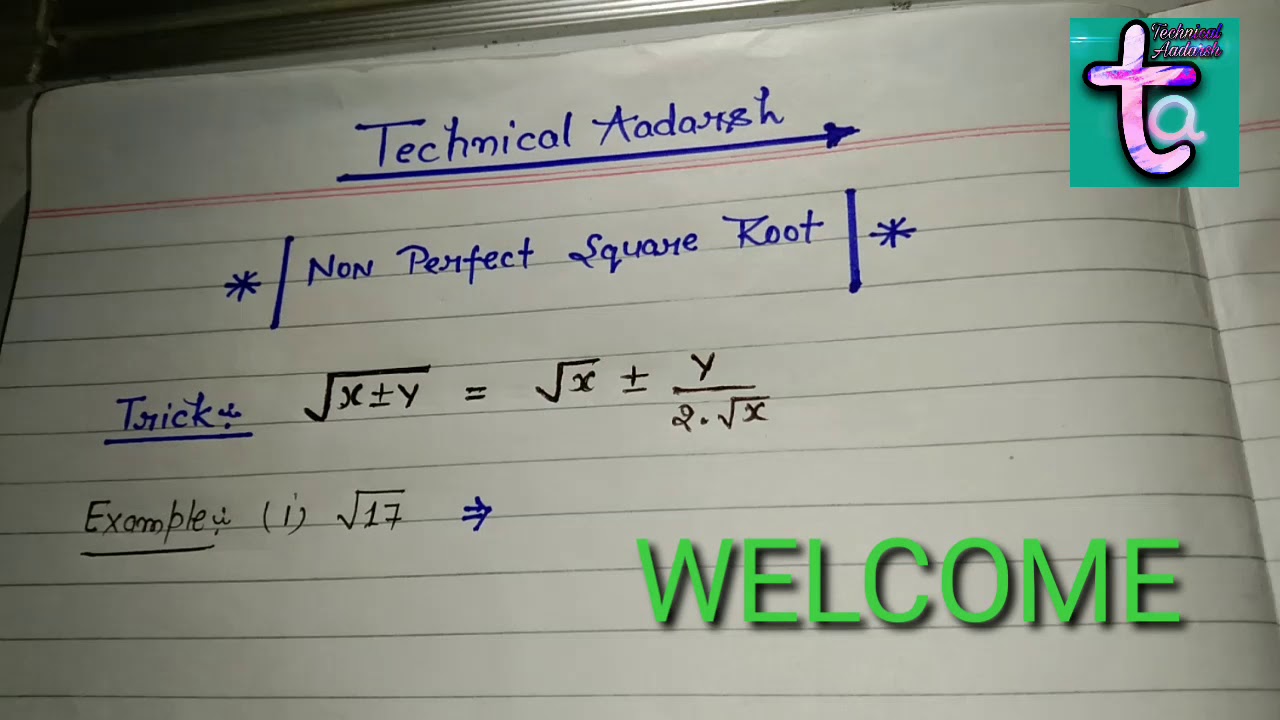 Technical Aadarsh
Technical
Aadarsh
ta
* | Non Perfect Square Root | *
Trick:- √(x±y) = √x ± y/(2.√x)
Example:- (i) √17 ⇒
WELCOME